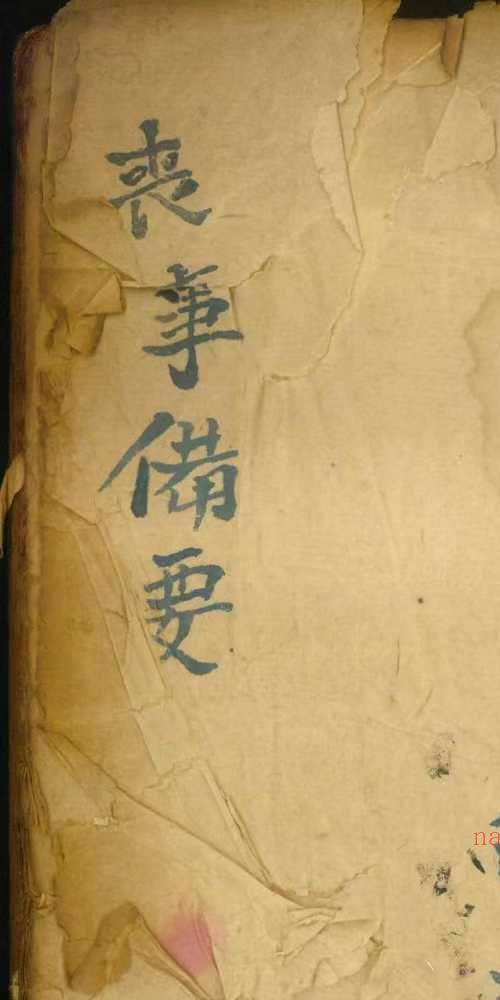 喪事備要
na